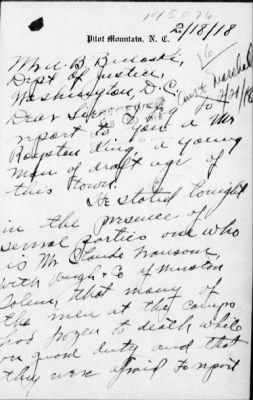 145076
2/18/18
Pilot Mountain, N. C.
Mr. A. B. Bielaski,
Dept of Justice,
Washington, D. C.
Dear Sir: I beg to
report to you a Mr
Royston King, a young
man of draft age of
this town.
He stated tonight
in the presence of
several parties one who
is Mr Claude Transou,
with Vaugh & Co of Winston
Salem, that many of
the men at the camps
had frozen to death while
on guard duty and that
they were afraid to report